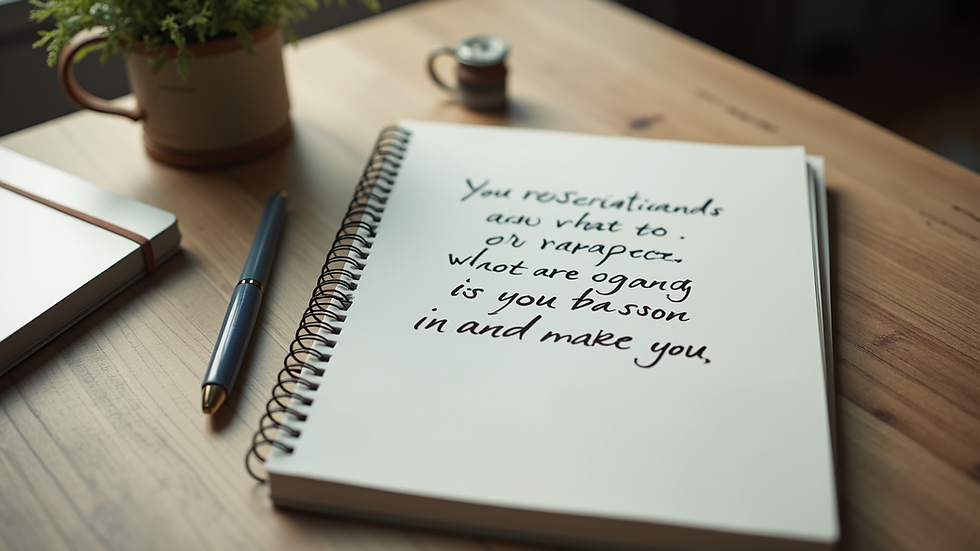 You roscriaticands
acw vhat to.
or rarapecc.
whot are ogang
is you basson
in and make you,